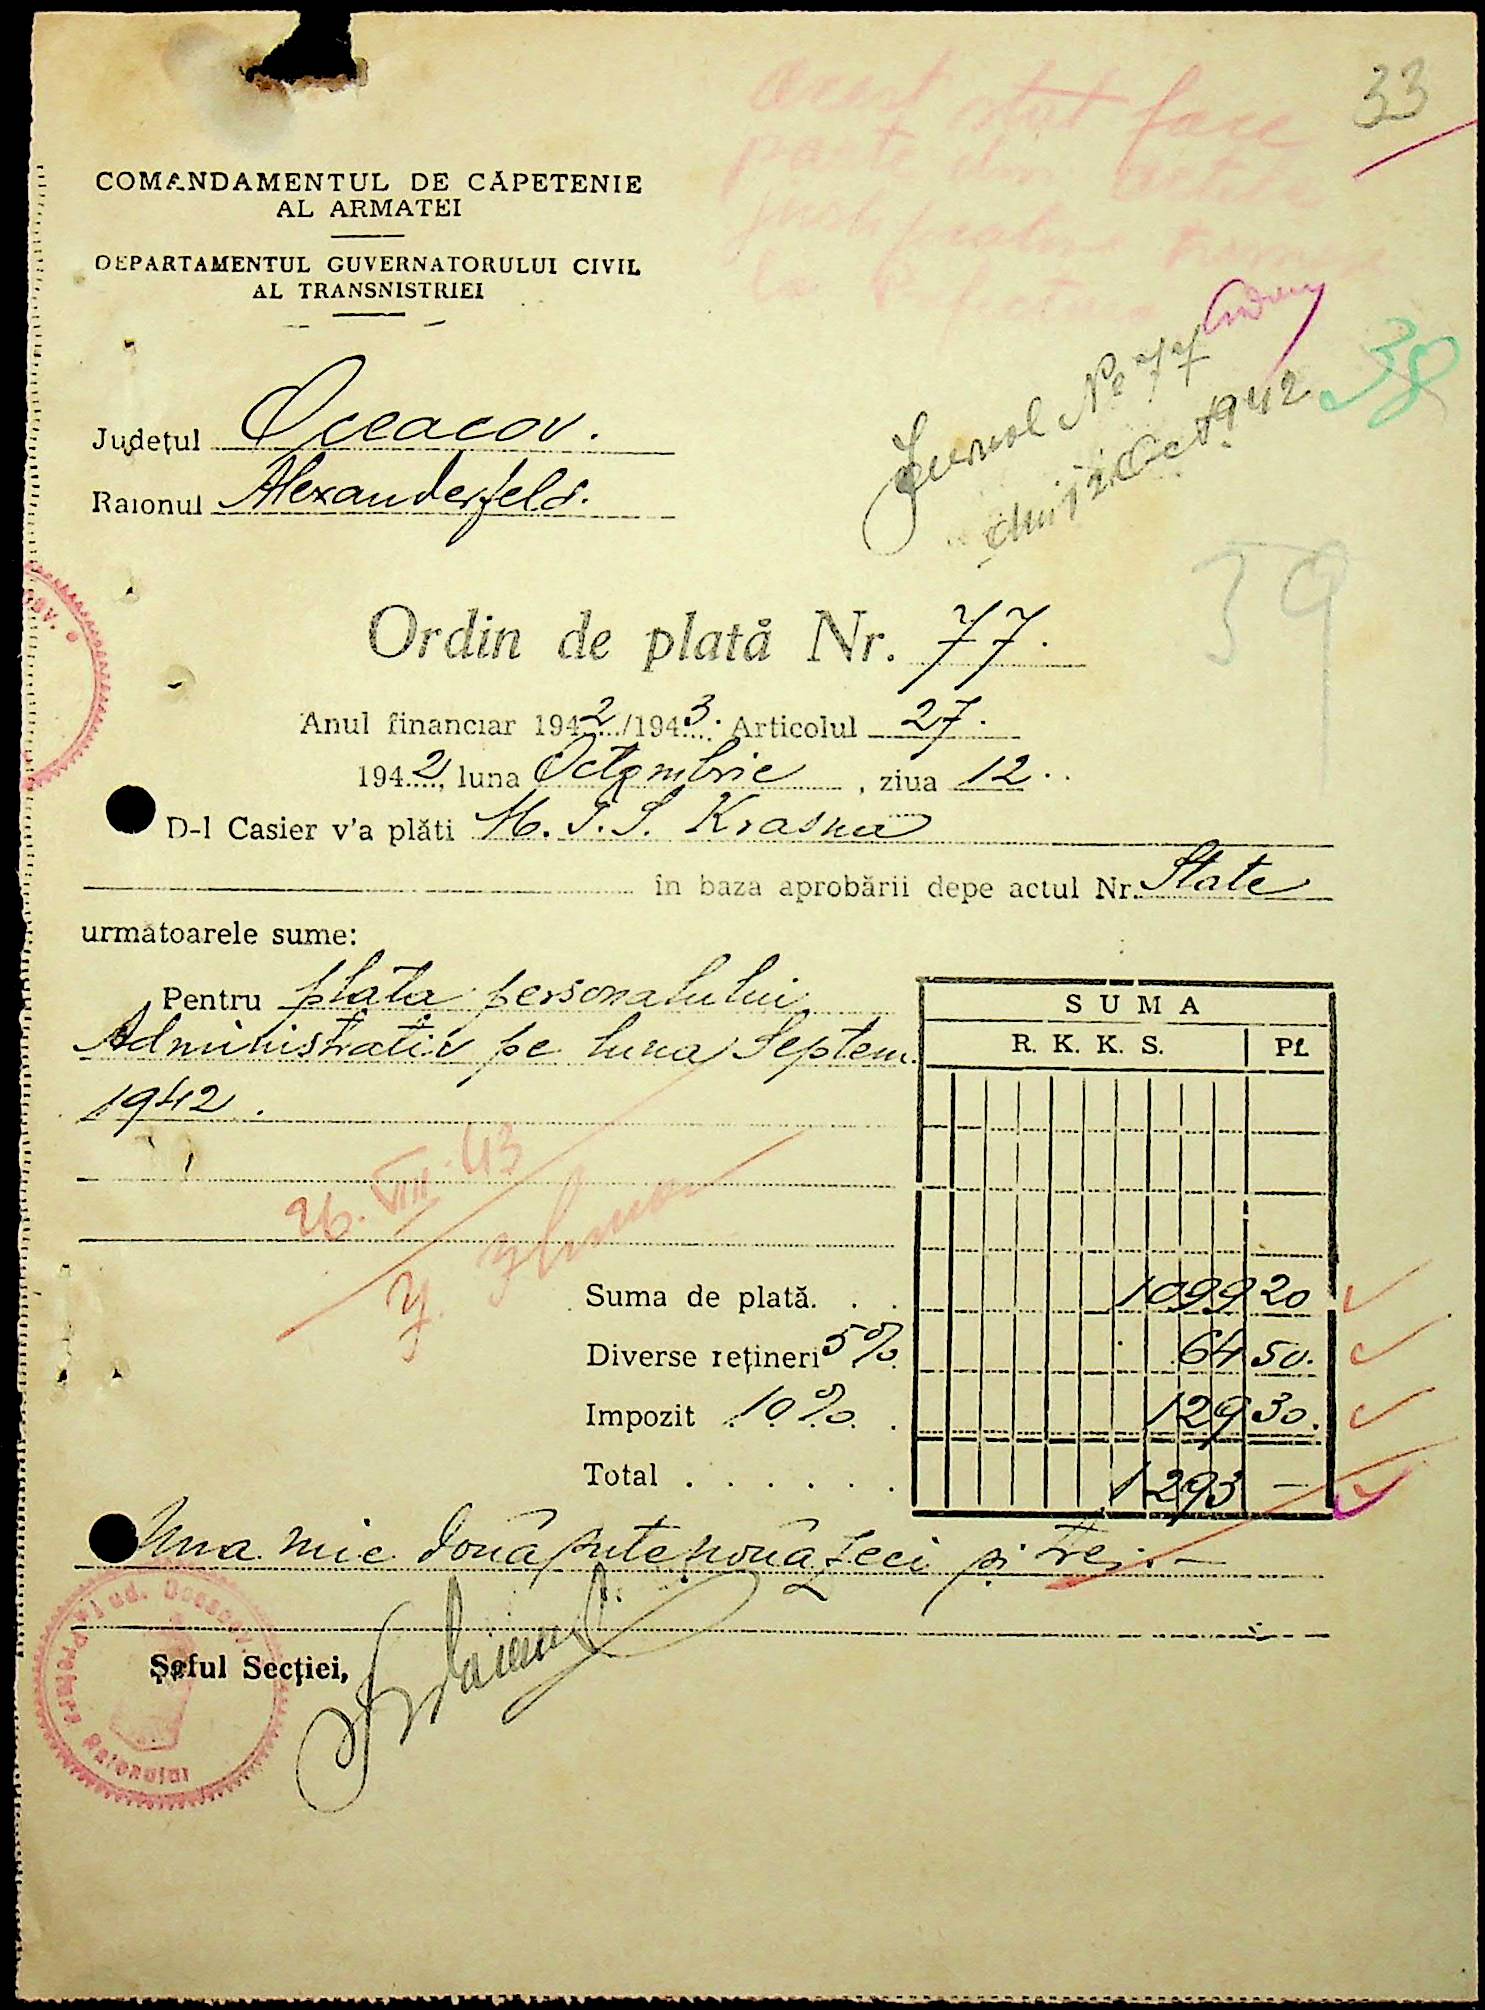 33
acest stat face
parte din actele
justificative
la Prefectura
COMANDAMENTUL DE CĂPETENIE
AL ARMATEI
DEPARTAMENTUL GUVERNATORULUI CIVIL
AL TRANSNISTRIEI
Jurnal No 77
din 12 Oct 1942
38
Județul Oceacov.
Raionul Alexanderfeld.
39
Ordin de plată Nr. 77.
Anul financiar 1942/1943. Articolul 27.
1942, luna Octombrie, ziua 12.
D-l Casier v'a plăti M. T. S. Krasna
în baza aprobării depe actul Nr. State
următoarele sume:
Pentru plata personalului
Administrativ pe luna Septem.
1942.
SUMA
R. K. K. S. Pf.
26.VIII.43
Suma de plată. . . 1099 20
Diverse rețineri 5% 64 50.
Impozit 10% . 129 30.
Total . . . . . . 1293 —
Una mie două sute nouă zeci și trei.—
Șeful Secției,
Jud. Oceacov
Pretura Raionului